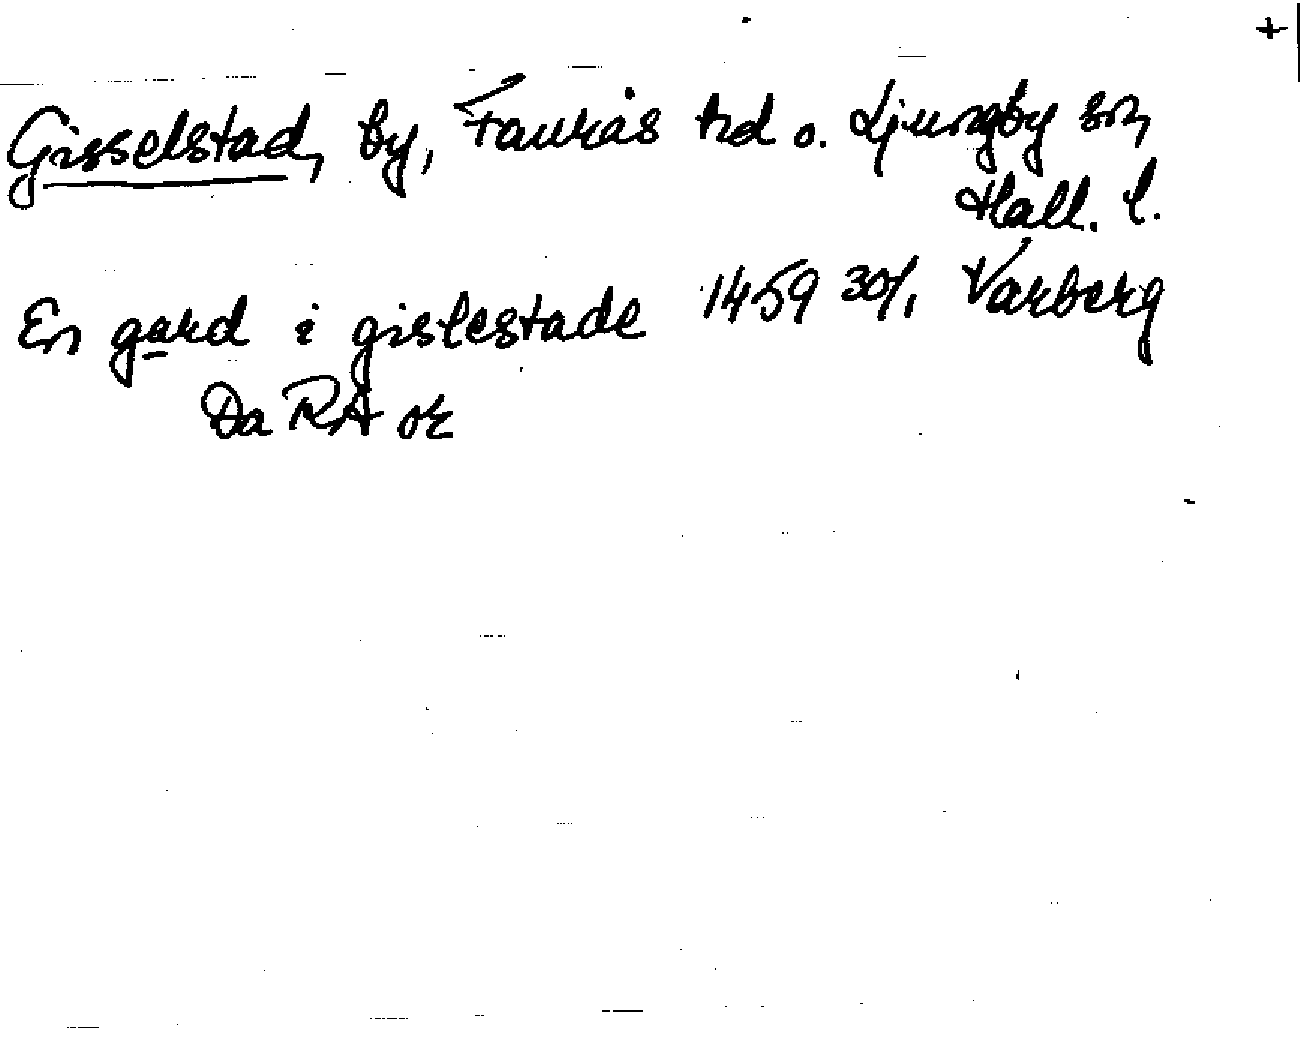 +
Gisselstad, by, Faurås hd o. Ljungby sn,
Hall. l.
En gard i gislestade 1459 30/1 Varberg
Da RA or